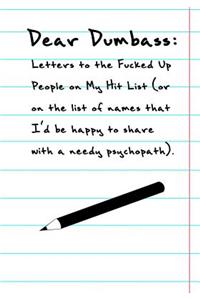 Dear Dumbass:
Letters to the Fucked Up
People on My Hit List (or
on the list of names that
I'd be happy to share
with a needy psychopath).